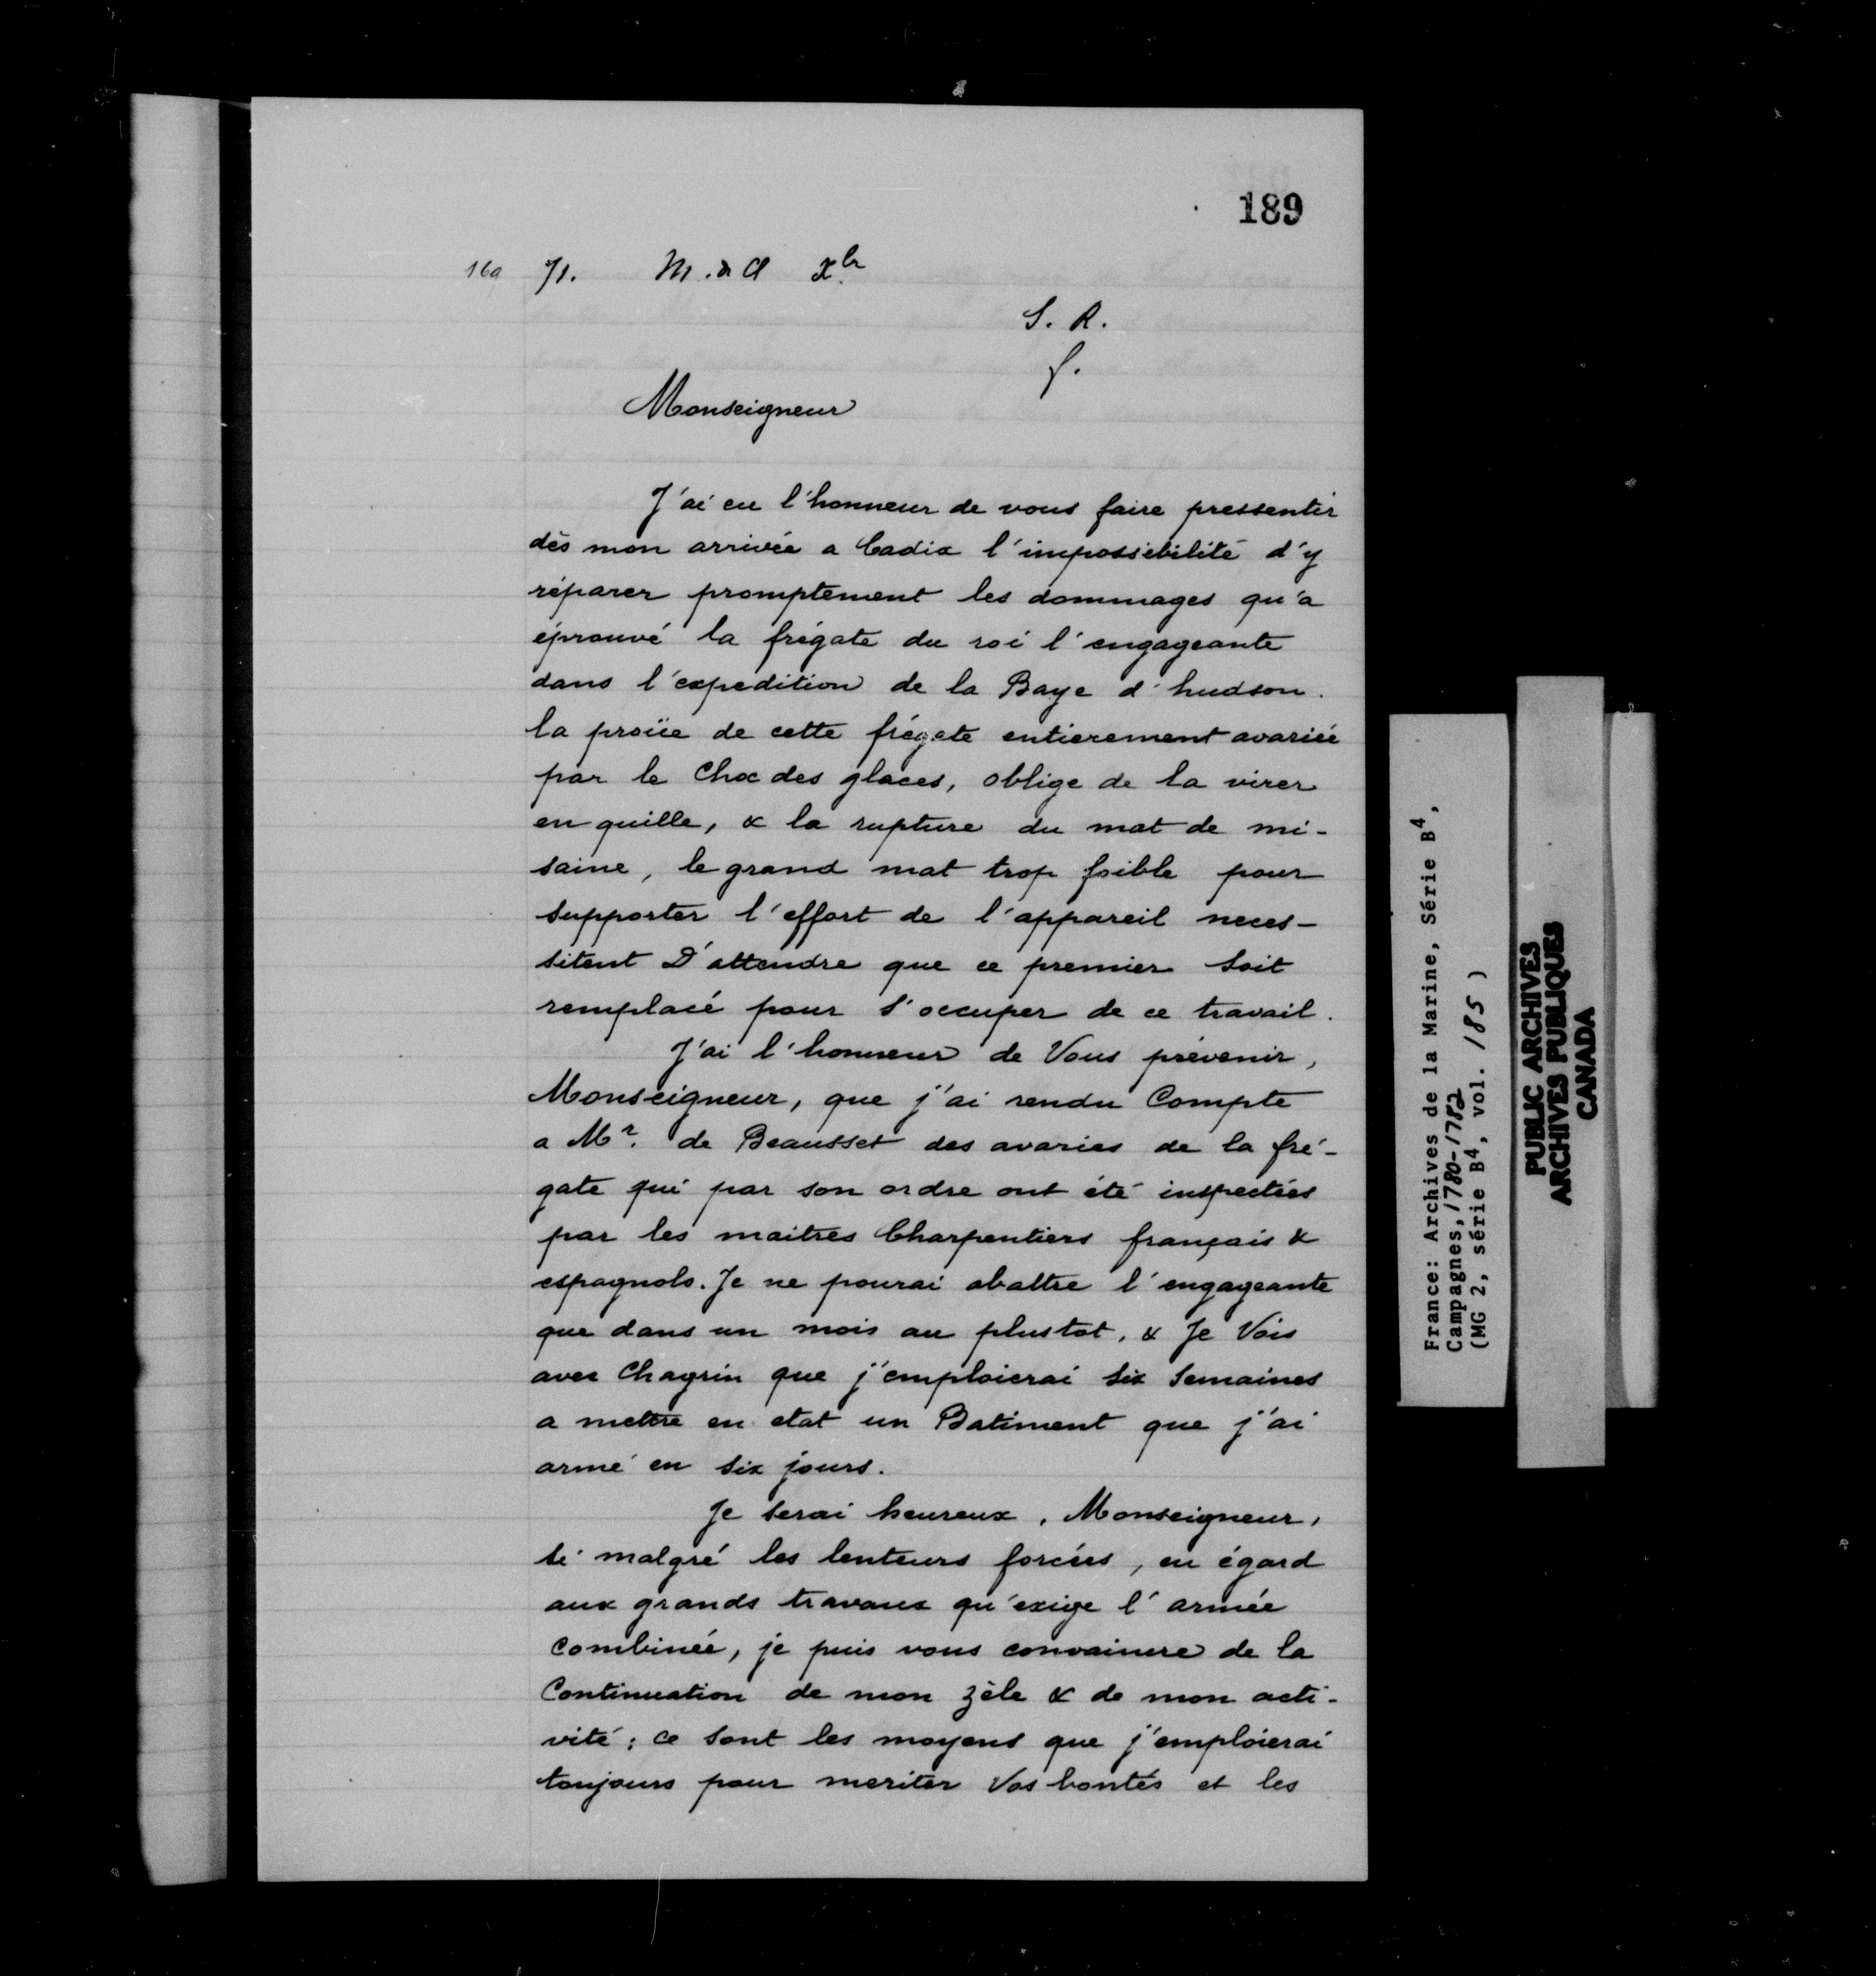 189
169 71. M. & A Xbr
S. R.
f.
Monseigneur
J'ai eu l'honneur de vous faire pressentir
dès mon arrivée a Cadix l'impossibilité d'y
réparer promptement les dommages qu'a
éprouvé la frégate du roi l'engageante
dans l'expedition de la Baye d'hudson.
la proüe de cette frégate entierement avariée
par le Choc des glaces, oblige de la virer
en quille, & la rupture du mat de mi-
saine, le grand mat trop foible pour
supporter l'effort de l'appareil neces-
sitent D'attendre que ce premier soit
remplacé pour s'occuper de ce travail.
J'ai l'honneur de Vous prévenir,
Monseigneur, que j'ai rendu Compte
a Mr. de Beausset des avaries de la fré-
gate qui par son ordre ont été inspectées
par les maitres Charpentiers français &
espagnols. Je ne pourai abattre l'engageante
que dans un mois au plustot, & Je Vois
avec Chagrin que j'emploierai six Semaines
a mettre en etat un Batiment que j'ai
armé en six jours.
Je serai heureux, Monseigneur,
si malgré les lenteurs forcées, eu égard
aux grands travaux qu'exige l'armée
Combinée, je puis vous convaincre de la
Continuation de mon zèle & de mon acti-
vité; ce sont les moyens que j'emploierai
toujours pour meriter Vos bontés et les
France: Archives de la Marine, Série B4,
Campagnes, 1780-1782
(MG 2, série B4, vol. 185)
PUBLIC ARCHIVES
ARCHIVES PUBLIQUES
CANADA